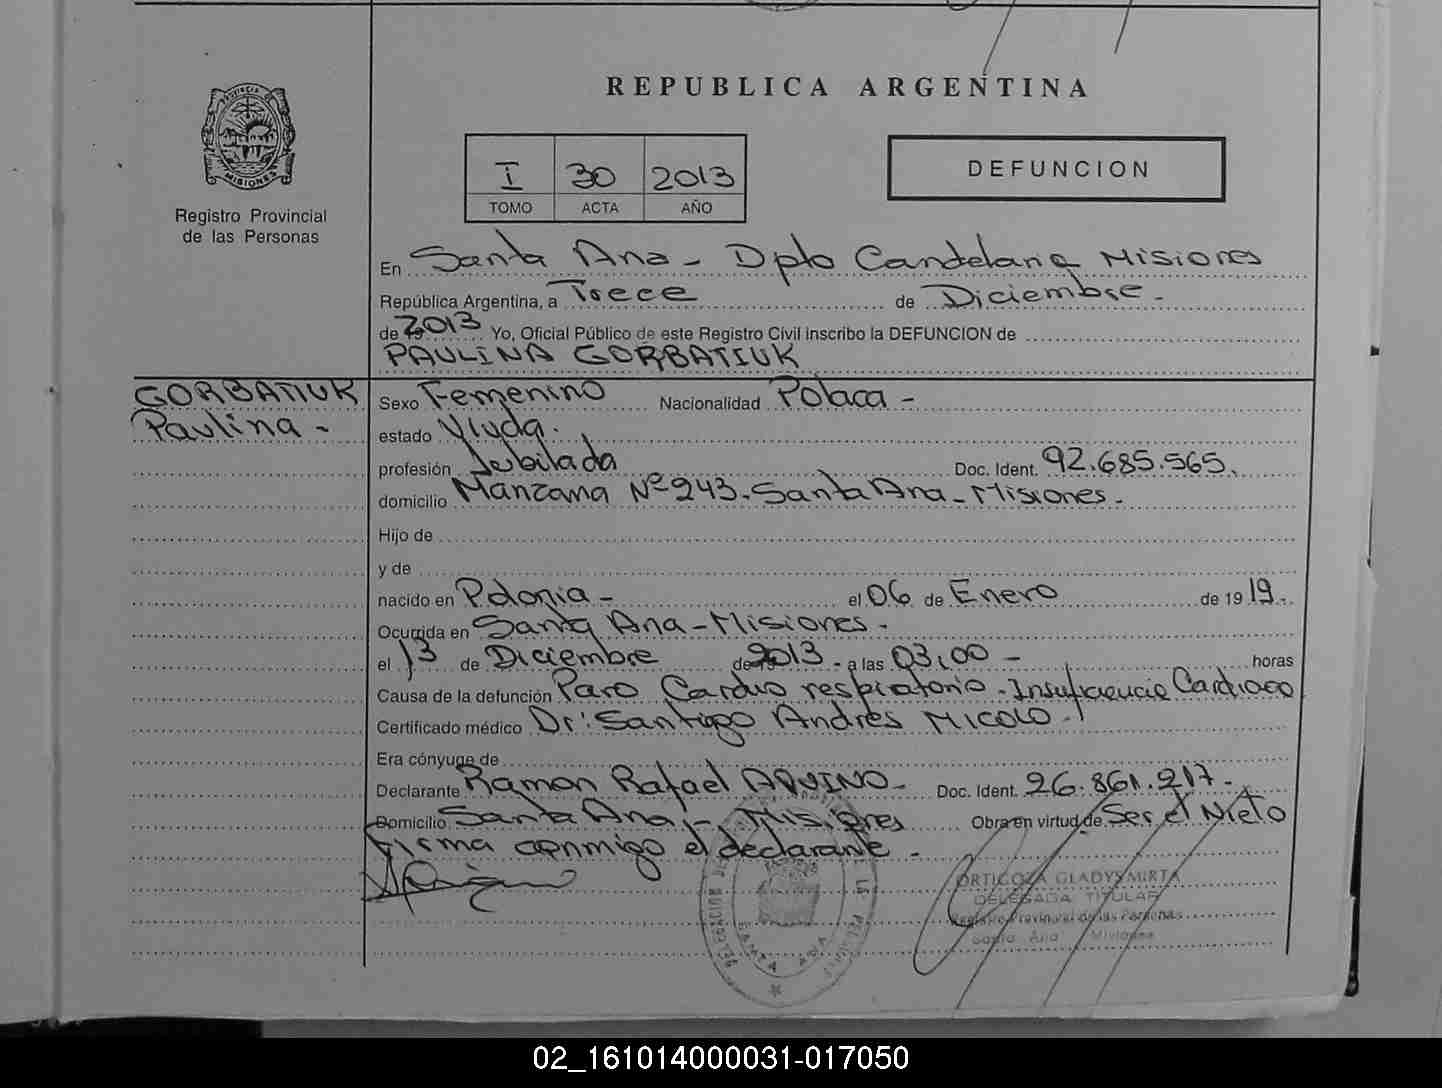 REPUBLICA ARGENTINA
PROVINCIA DE
MISIONES
Registro Provincial
de las Personas
I 30 2013
TOMO ACTA AÑO
DEFUNCION
En Santa Ana - Dpto Candelaria Misiones
República Argentina, a Trece de Diciembre -
de 2013 Yo, Oficial Público de este Registro Civil inscribo la DEFUNCION de
PAULINA GORBATIUK
GORBATIUK
Paulina -
Sexo Femenino Nacionalidad Polaca -
estado Viuda.
profesión Jubilada Doc. Ident. 92.685.565.
domicilio Manzana Nº 243. Santa Ana - Misiones -
Hijo de
y de
nacido en Polonia - el 06 de Enero de 1919.
Ocurrida en Santa Ana - Misiones -
el 13 de Diciembre de 2013 - a las 03,00 - horas
Causa de la defunción Paro Cardio respiratorio - Insuficiencia Cardiaca
Certificado médico Dr: Santiago Andrés MICOLO -
Era cónyuge de
Declarante Ramon Rafael AQUINO - Doc. Ident. 26.861.217 -
Domicilio Santa Ana - Misiones Obra en virtud de Ser el Nieto
firma conmigo el declarante -
ORTIGOZA GLADYS MIRTA
DELEGADA TITULAR
Registro Provincial de las Personas
Santa Ana Misiones
SANTA ANA
02_161014000031-017050